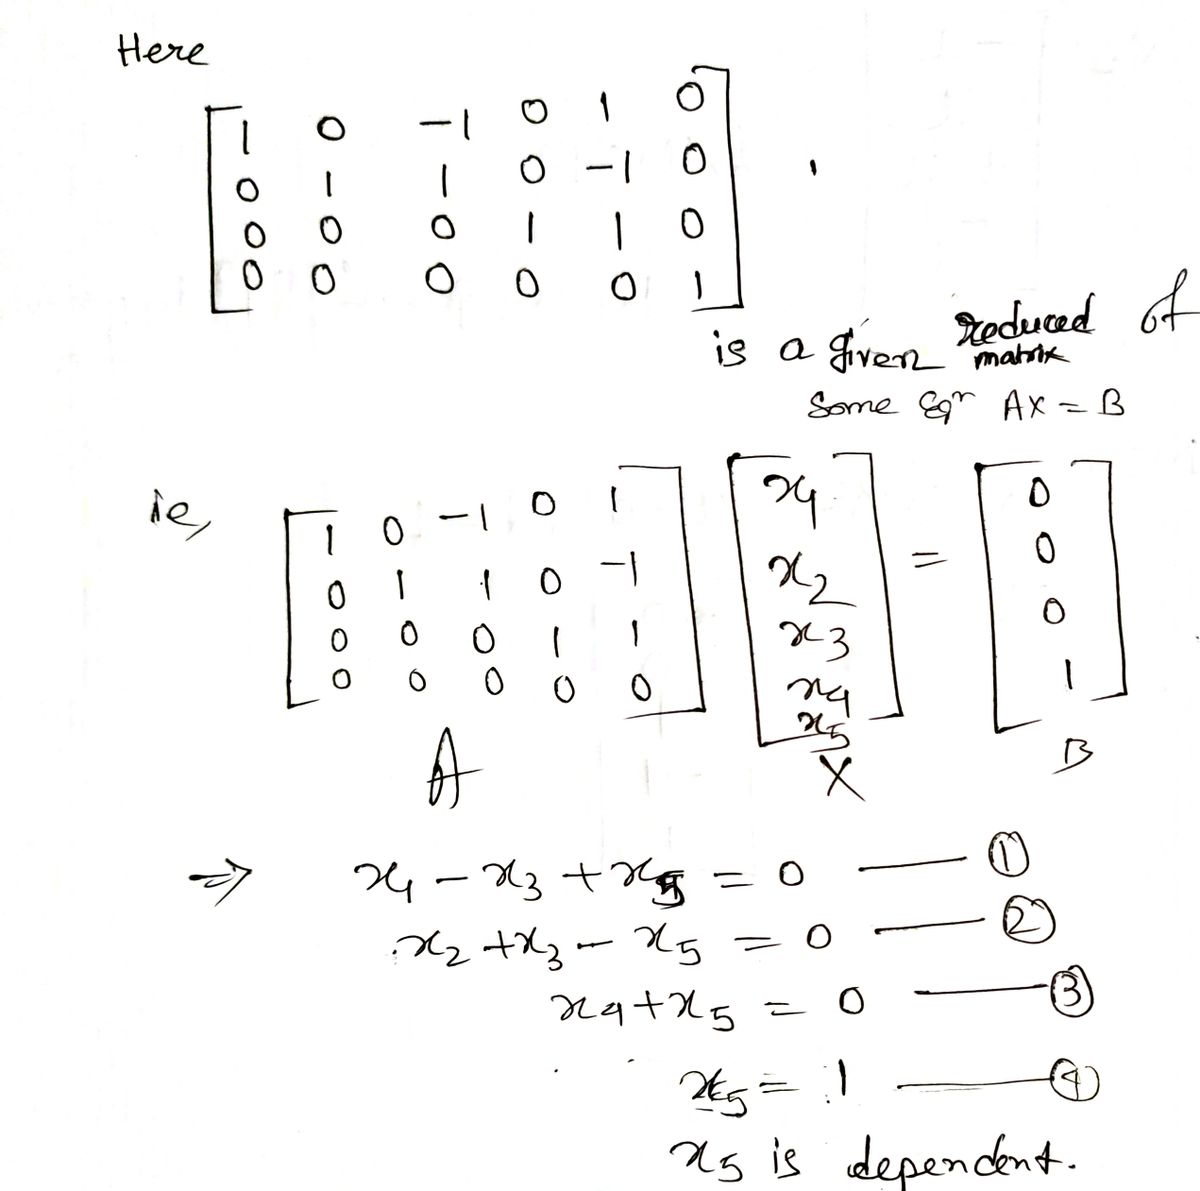 Here
1 0 -1 0 1 0
0 1 1 0 -1 0
0 0 0 1 1 0
0 0 0 0 0 1
is a given reduced matrix of
Some Eqn AX = B
ie,
1 0 -1 0 1
0 1 1 0 -1
0 0 0 1 1
0 0 0 0 0
A
x1
x2
x3
x4
x5
X
=
0
0
0
1
B
⇒ x1 - x3 + x5 = 0 — ①
x2 + x3 - x5 = 0 — ②
x4 + x5 = 0 — ③
x5 = 1 — ④
x5 is dependent.